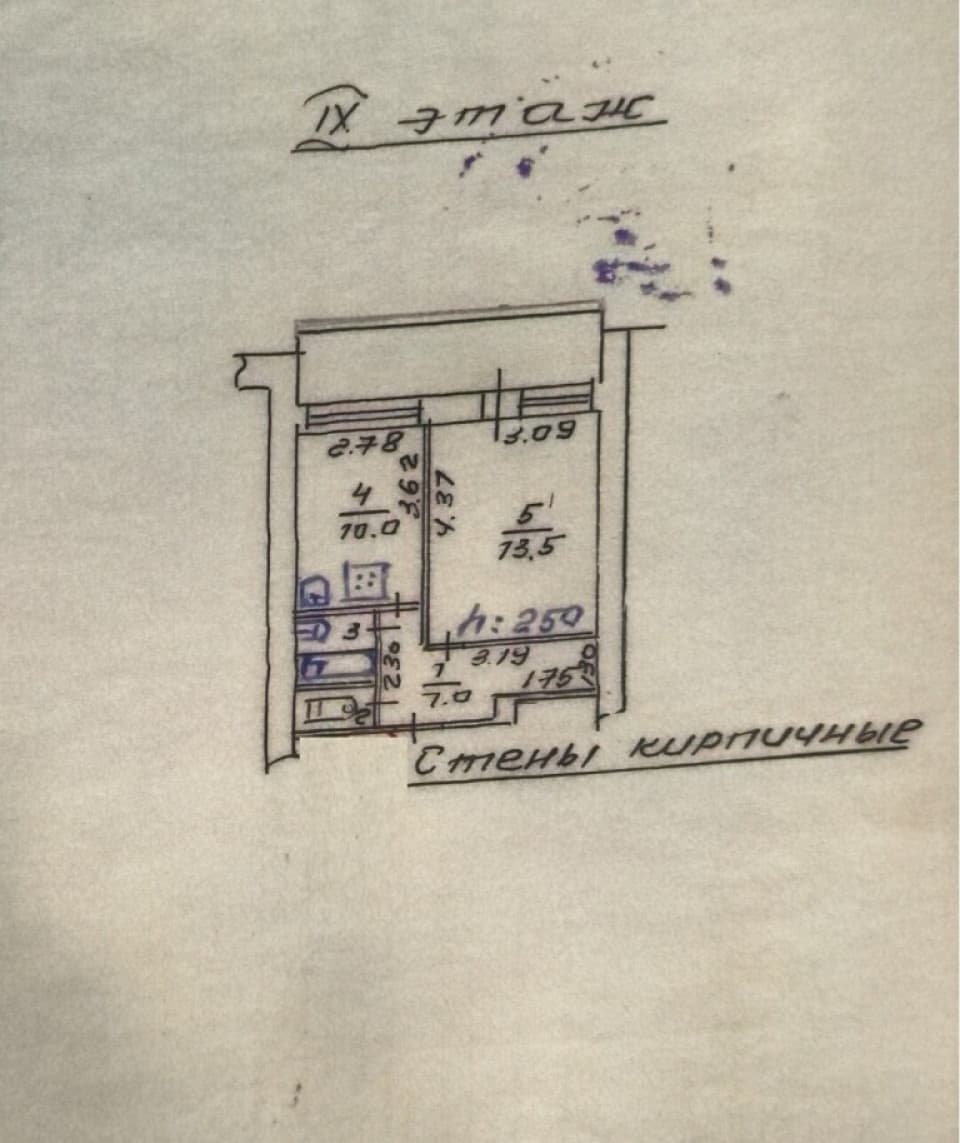 IX этаж
2.78
3.09
3.62
4.37
4
10.0
5
13.5
h: 250
3
3.19
2.30
1.30
1
7.0
1.75
2
Стены кирпичные